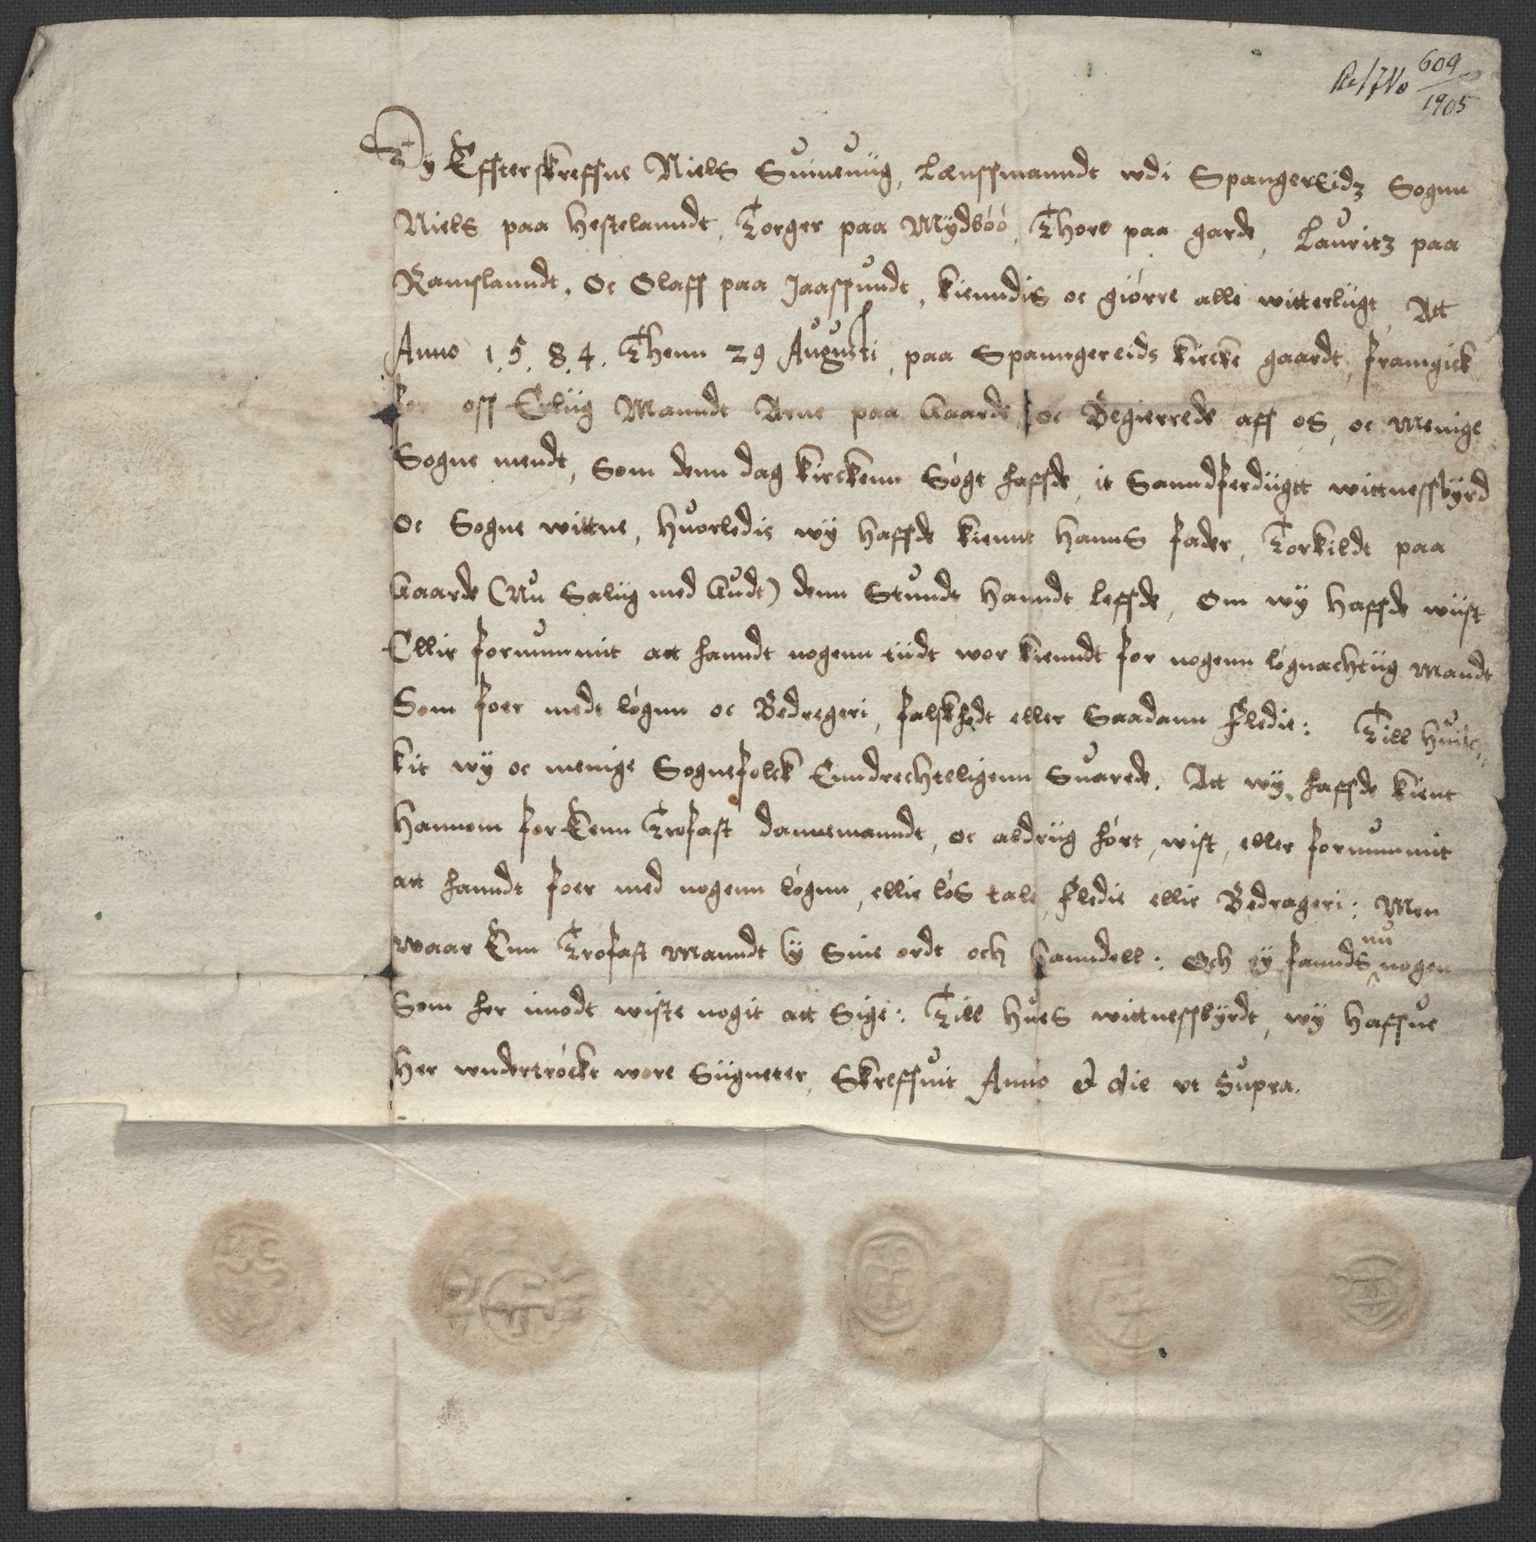 Ac/No 609
1905
Wy Effterskreffne Niels Suineuiig, Lænssmanndt wdi Spangereidz Sognn
Niels paa Hestelanndt, Torger paa Mydbóó, Thore paa garde, Lauritz paa
Ramslanndt, Oc Olaff paa Jaasundt, kienndis oc giórre alle witterlügt, Att
Anno 1.5.8.4. Thenn 29 Augusti, paa Spanngereids kircke gaardt, framgick
for oss Erlüg Manndt Arne paa Aaarde oc Begierrede aff os, oc Menige
Sogne mendt, Som denn dag kirckenn Sógt haffde, it Sanndferdügtt wittnessbyrd
Oc Sogne wittne, huorledis wÿ haffde kiennt hanns fader, Torkildt paa
Aaarde (Nu Salüg med Gudt) denn Stundt hanndt leffde, Om wÿ haffde wüst
Ellir fornummit att hanndt nogenn tüdt wor kienndt for nogenn lógnachtüg Mandt
Som foer medt lógnn oc Bedregeri, falskhedt eller Saadann fledie: Till huilc-
kit wÿ oc menige Sognefolck Enndrechteligenn Suarede, Att wÿ haffde kient
hannom for Eenn Trofast dannemanndt, oc aldrüg hórt, wist, eller fornummit
att hanndt foer med nogenn lógnn, ellir lós tale, fledie ellir Bedrageri: Men
waar Enn Trofast Manndt ÿ Sine ordt och hanndell: Och eÿ fannds nu nogen
Som her imodt wiste nogit att Sige: Till hues wittnessbyrdt, wÿ haffue
her wndertróckt wore Sügneter, Skreffuit Anno & die ut Supra.